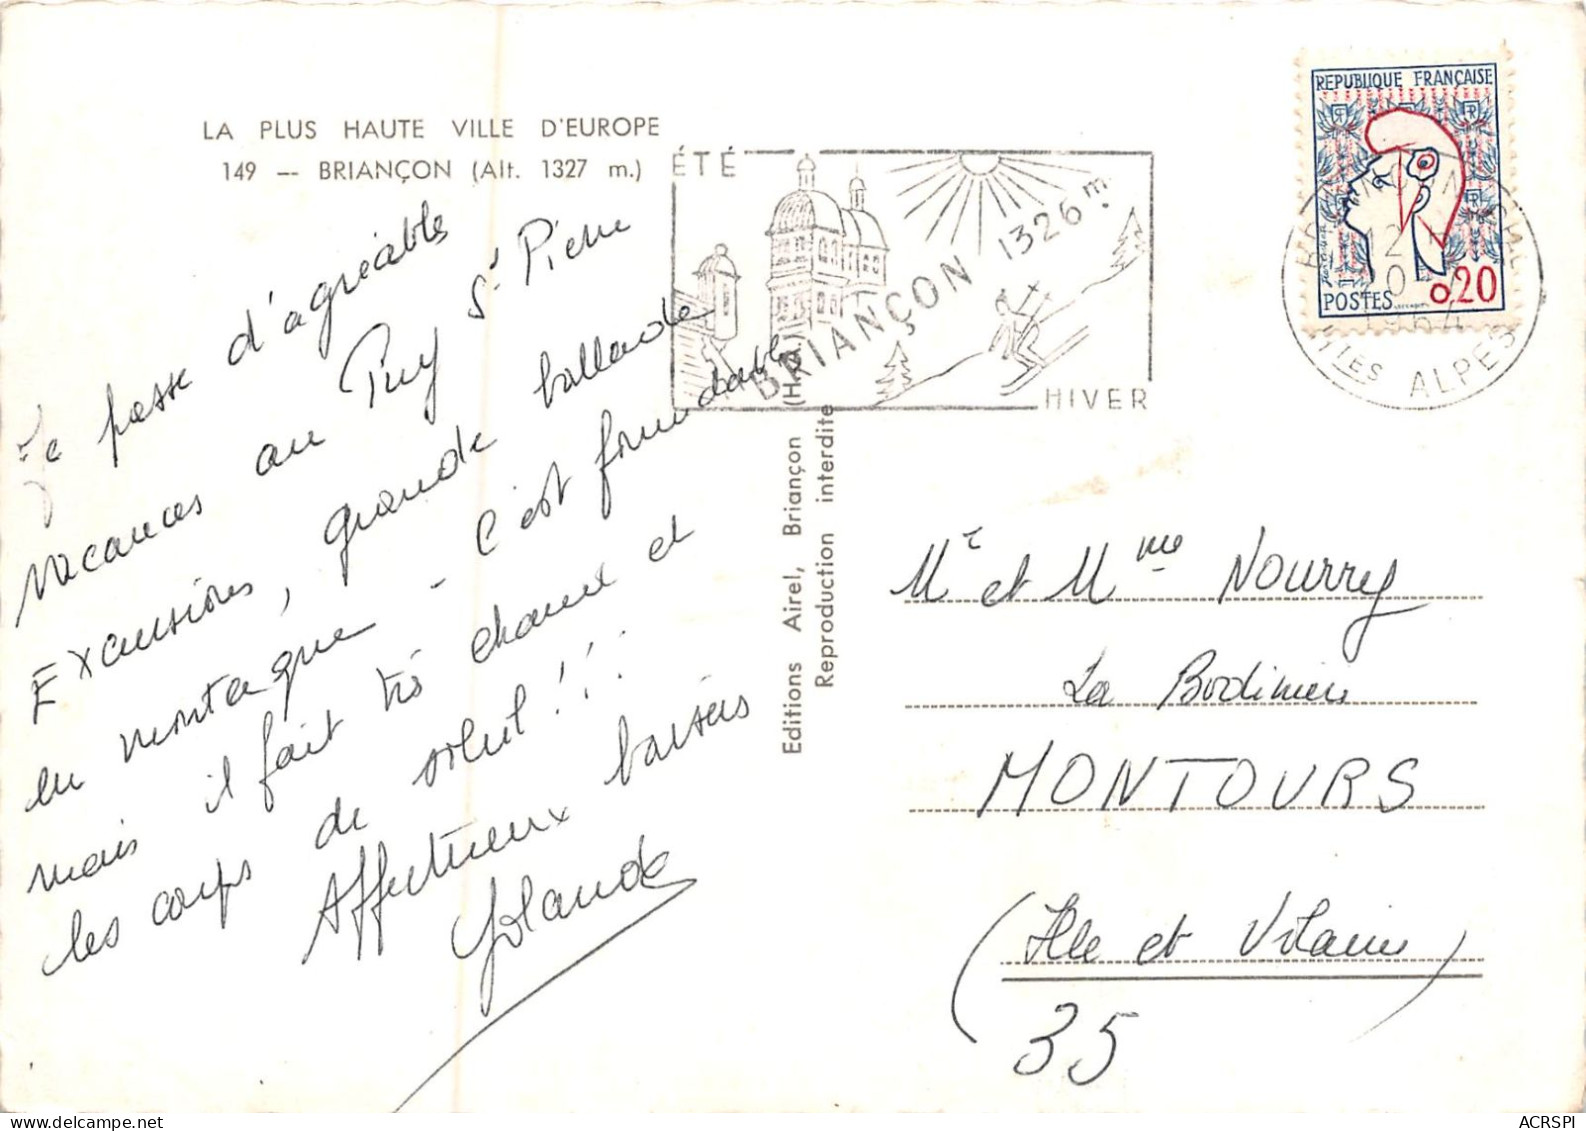 LA PLUS HAUTE VILLE D'EUROPE
149 -- BRIANÇON (Alt. 1327 m.)
Je passe d'agréables
vacances au Puy St Pierre
Excursions, grande ballade
en montagne - C'est formidable
mais il fait très chaud et
les corps de soleil !!!
Affectueux baisers
Yolande
ÉTÉ
BRIANÇON 1326 m.
HIVER
REPUBLIQUE FRANÇAISE
POSTES 0.20
BRIANÇON
12 H
1964
HTES ALPES
Editions Airel, Briançon (H.-A.)
Reproduction interdite
Mr et Mme Nourry
La Bodinière
MONTOURS
(Ille et Vilaine)
35
ACRSPI